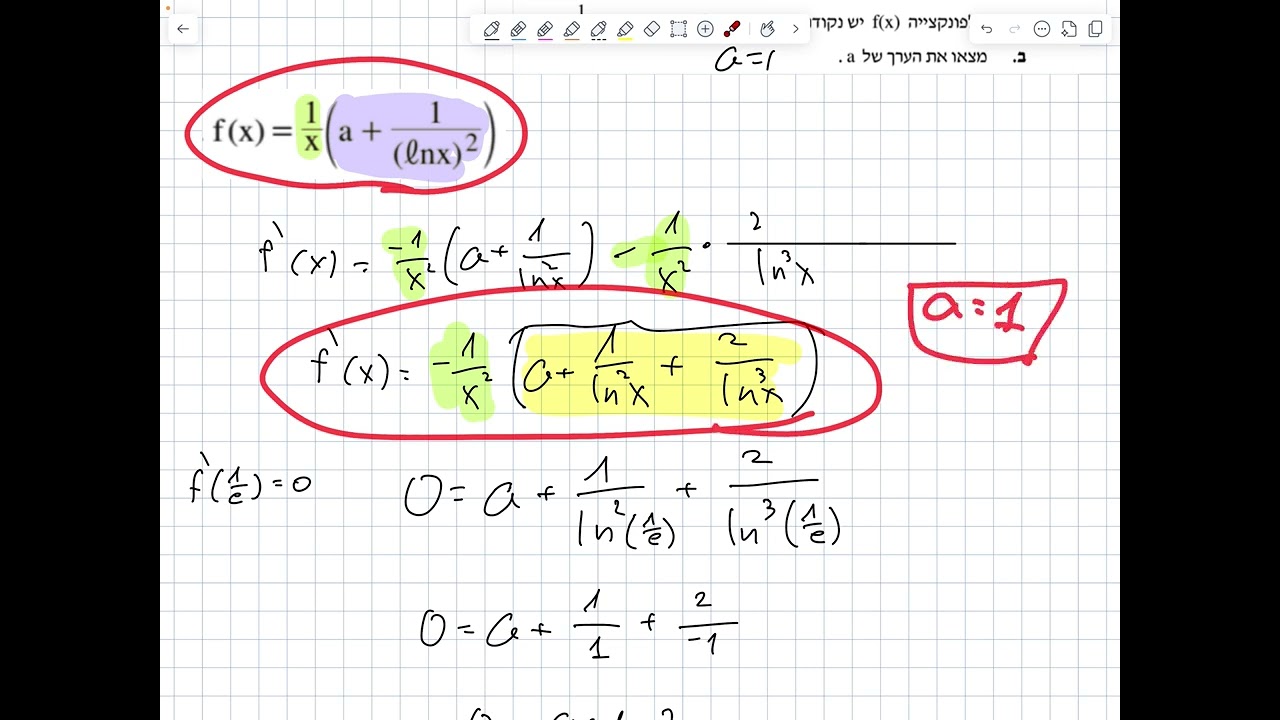 1
לפונקצייה f(x) יש נקודו
ב. מצאו את הערך של a .
a=1
f(x) = 1/x (a + 1/(ℓnx)²)
f`(x) = -1/x² (a + 1/ln²x) - 1/x² · 2/ln³x
a=1
f`(x) = -1/x² (a + 1/ln²x + 2/ln³x)
f`(1/e) = 0
0 = a + 1/ln²(1/e) + 2/ln³(1/e)
0 = a + 1/1 + 2/-1